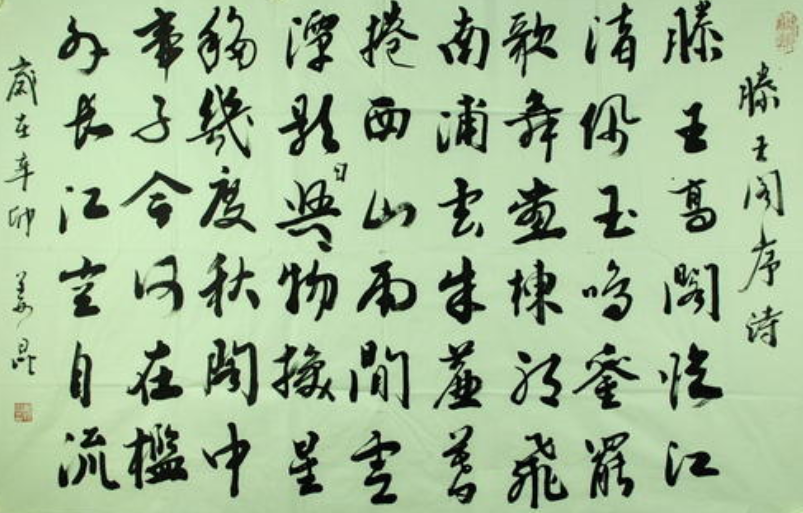 滕王阁序诗
滕王高閣临江
渚佩玉鸣銮罷
歌舞畫棟朝飛
南浦云朱簾暮
捲西山雨閒雲
潭影日悠悠物換星
移幾度秋閣中
帝子今何在檻
外長江空自流
歲在辛卯 姜昆